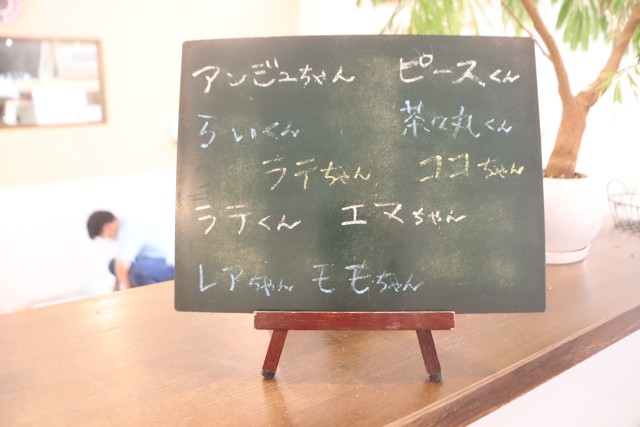 アンジュちゃん ピースくん
らいくん 茶々丸くん
ラテちゃん ココちゃん
ラテくん エマちゃん
レアちゃん モモちゃん